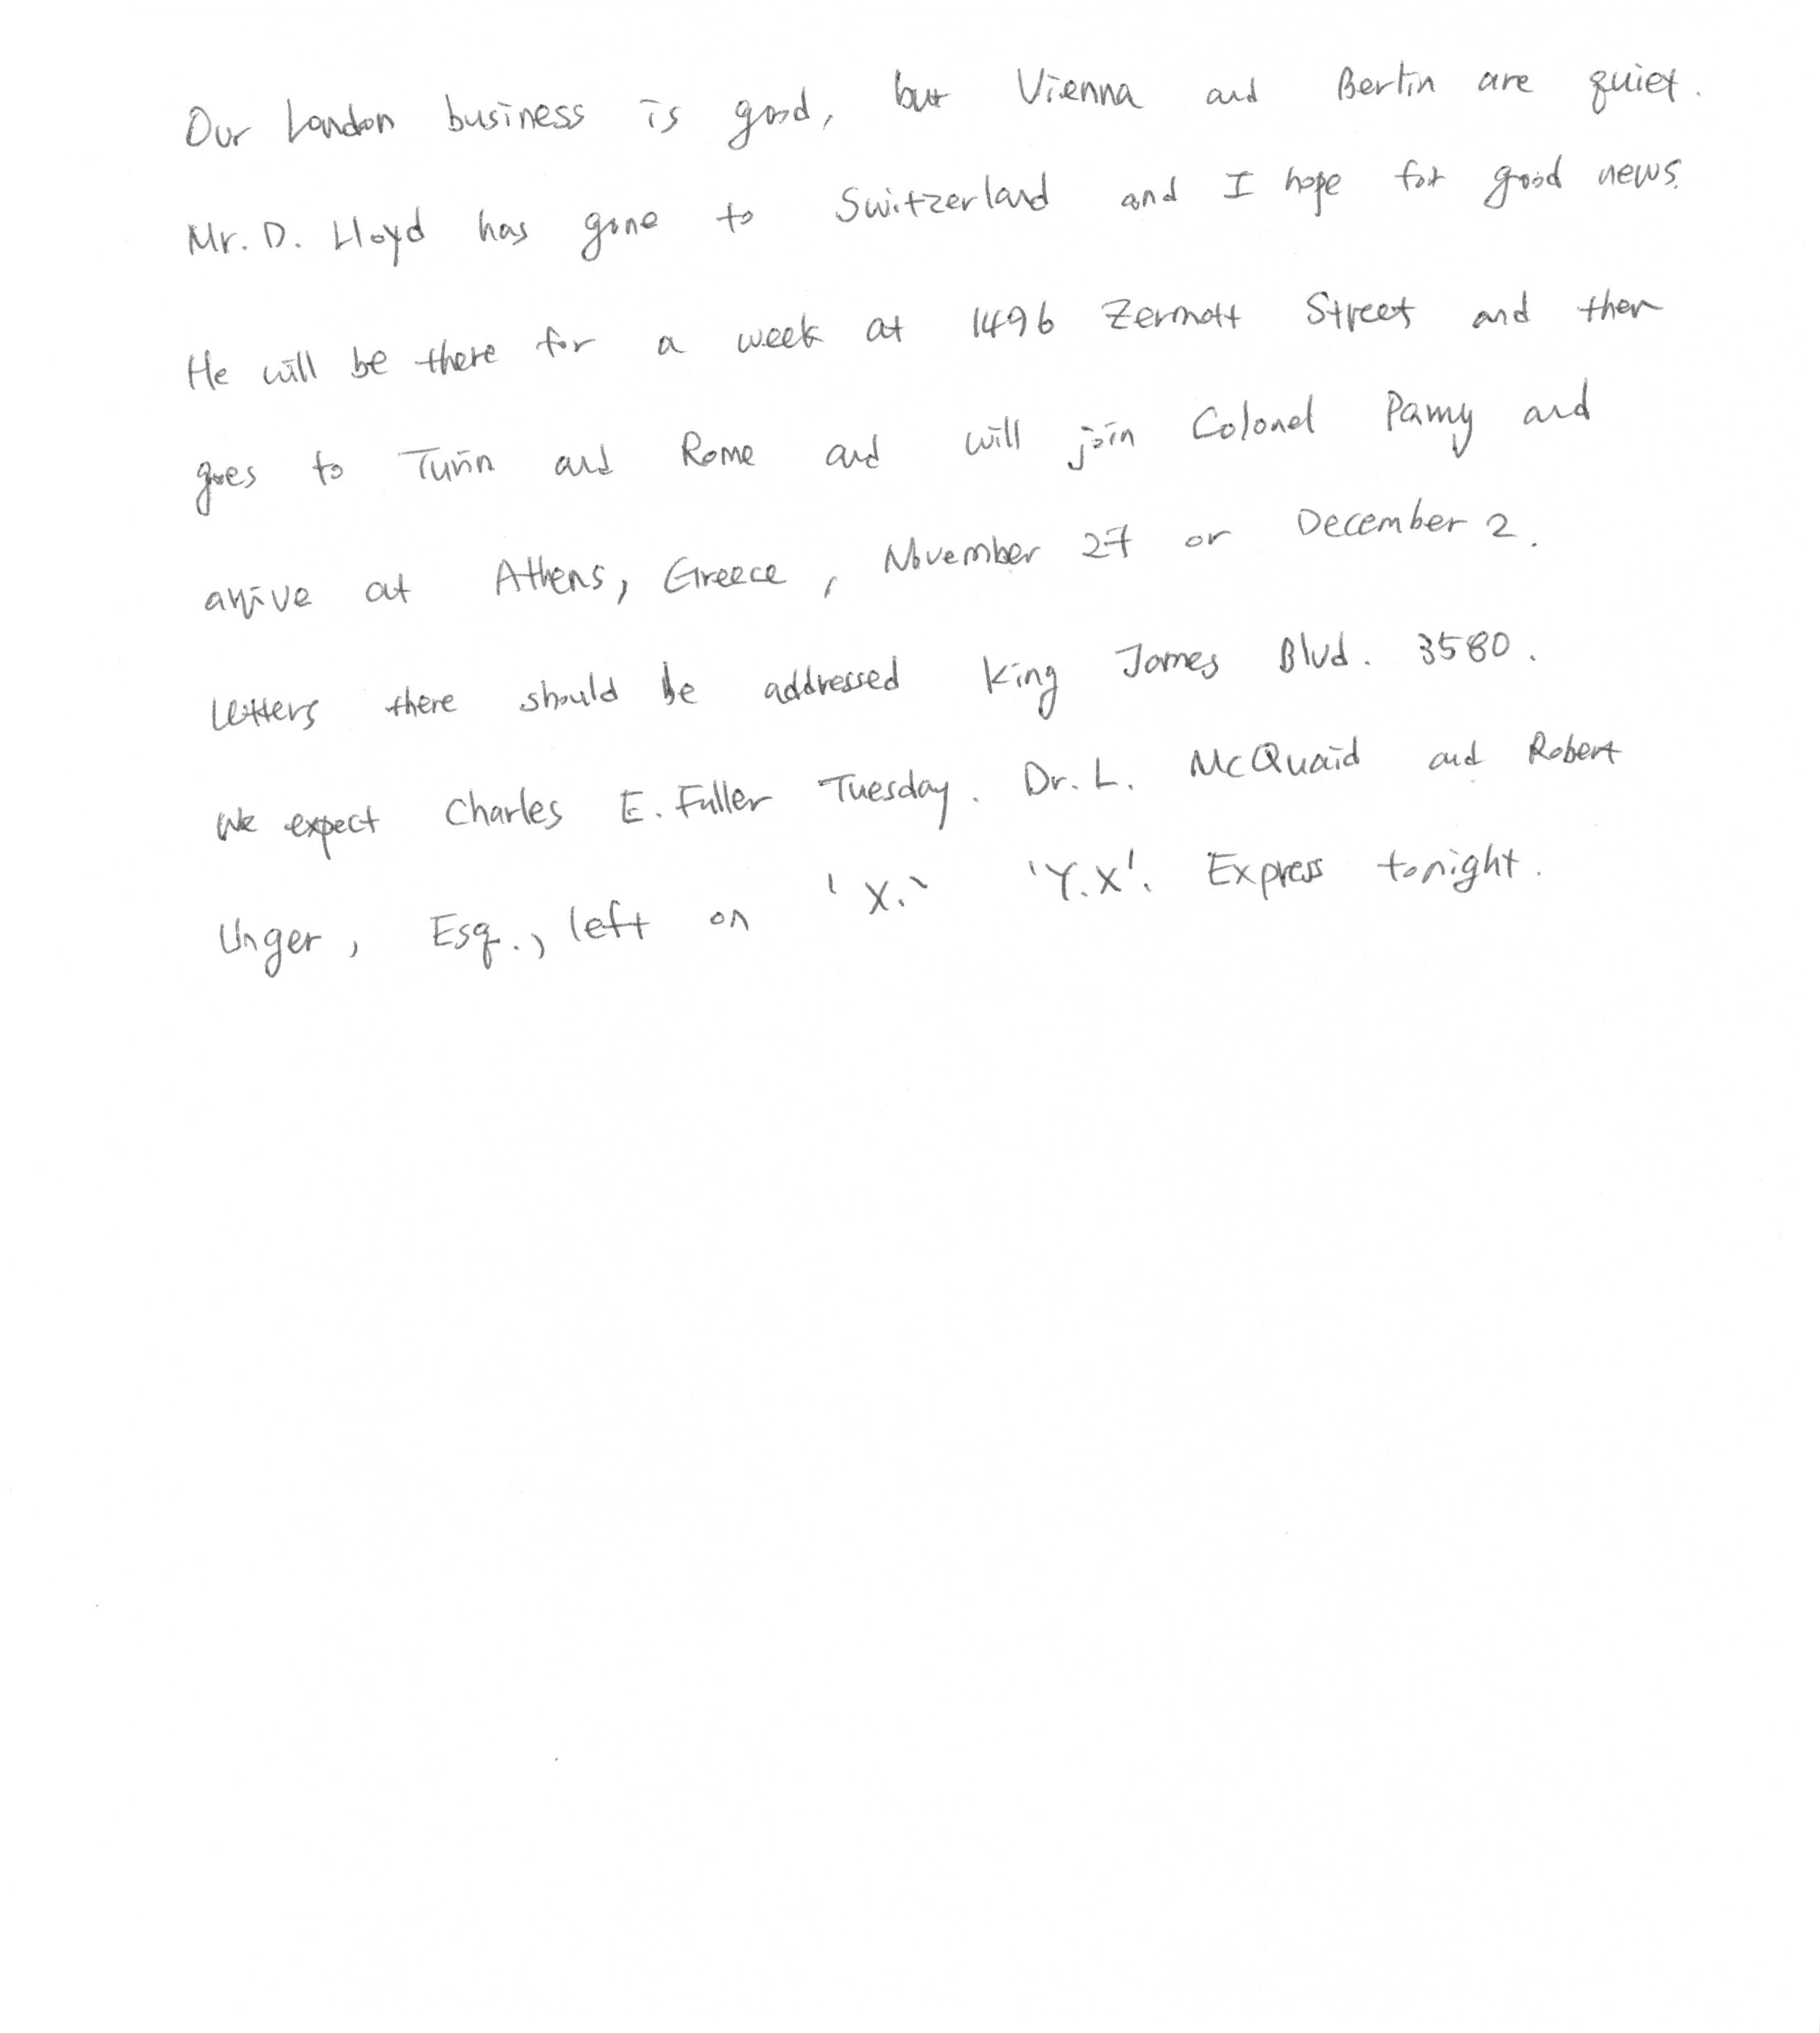 Our London business is good, but Vienna and Berlin are quiet.
Mr. D. Lloyd has gone to Switzerland and I hope for good news.
He will be there for a week at 1496 Zermott Street and then
goes to Turin and Rome and will join Colonel Parry and
arrive at Athens, Greece, November 27 or December 2.
Letters there should be addressed King James Blvd. 3580.
We expect Charles E. Fuller Tuesday. Dr. L. McQuaid and Robert
Unger, Esq., left on 'X.' 'Y.X'. Express tonight.